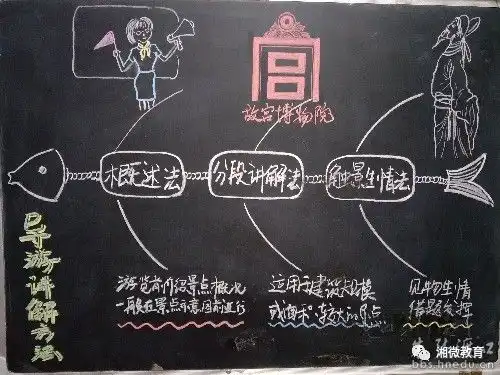 故宫博物院
概述法
分段讲解法
触景生情法
导游讲解方法
游览前介绍景点概况
一般在景点示意图前进行
适用于建筑规模
或面积较大的景点
见物生情
借题发挥
湘微教育
bbs.hnedu.cn